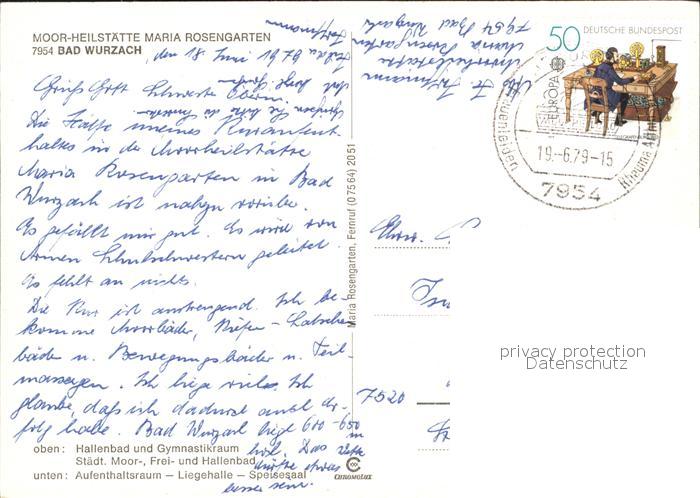 MOOR-HEILSTÄTTE MARIA ROSENGARTEN
7954 BAD WURZACH
den 18. Juni 1979
Grüß Gott Schwester Oberin!
Die Hälfte meines Kuraufent-
haltes in der Moorheilstätte
Maria Rosengarten in Bad
Wurzach ist nahezu vorüber.
Es gefällt mir gut. Es wird von
Armen Schulschwestern geleitet.
Es fehlt an nichts.
Die Kur ist anstrengend. Ich be-
komme Moorbäder, Kiefer-Latschen
bäder u. Bewegungsbäder u. Teil-
massagen. Ich liege viel. Ich
glaube, daß ich dadurch auch Er-
folg habe. Bad Wurzach liegt 600-650 m
hoch. Das Wetter
dürfte etwas
besser sein.
oben: Hallenbad und Gymnastikraum
Städt. Moor-, Frei- und Hallenbad
unten: Aufenthaltsraum – Liegehalle – Speisesaal
Maria Rosengarten, Fernruf (0 75 64) 20 51
CHROMOLUX
Moorheilstätte
Maria Rosengarten
7954 Bad Wurzach
50 DEUTSCHE BUNDESPOST
EUROPA
Frauenleiden
19.-6.79-15
7954
Rheuma
Ehrw.
7520
privacy protection
Datenschutz